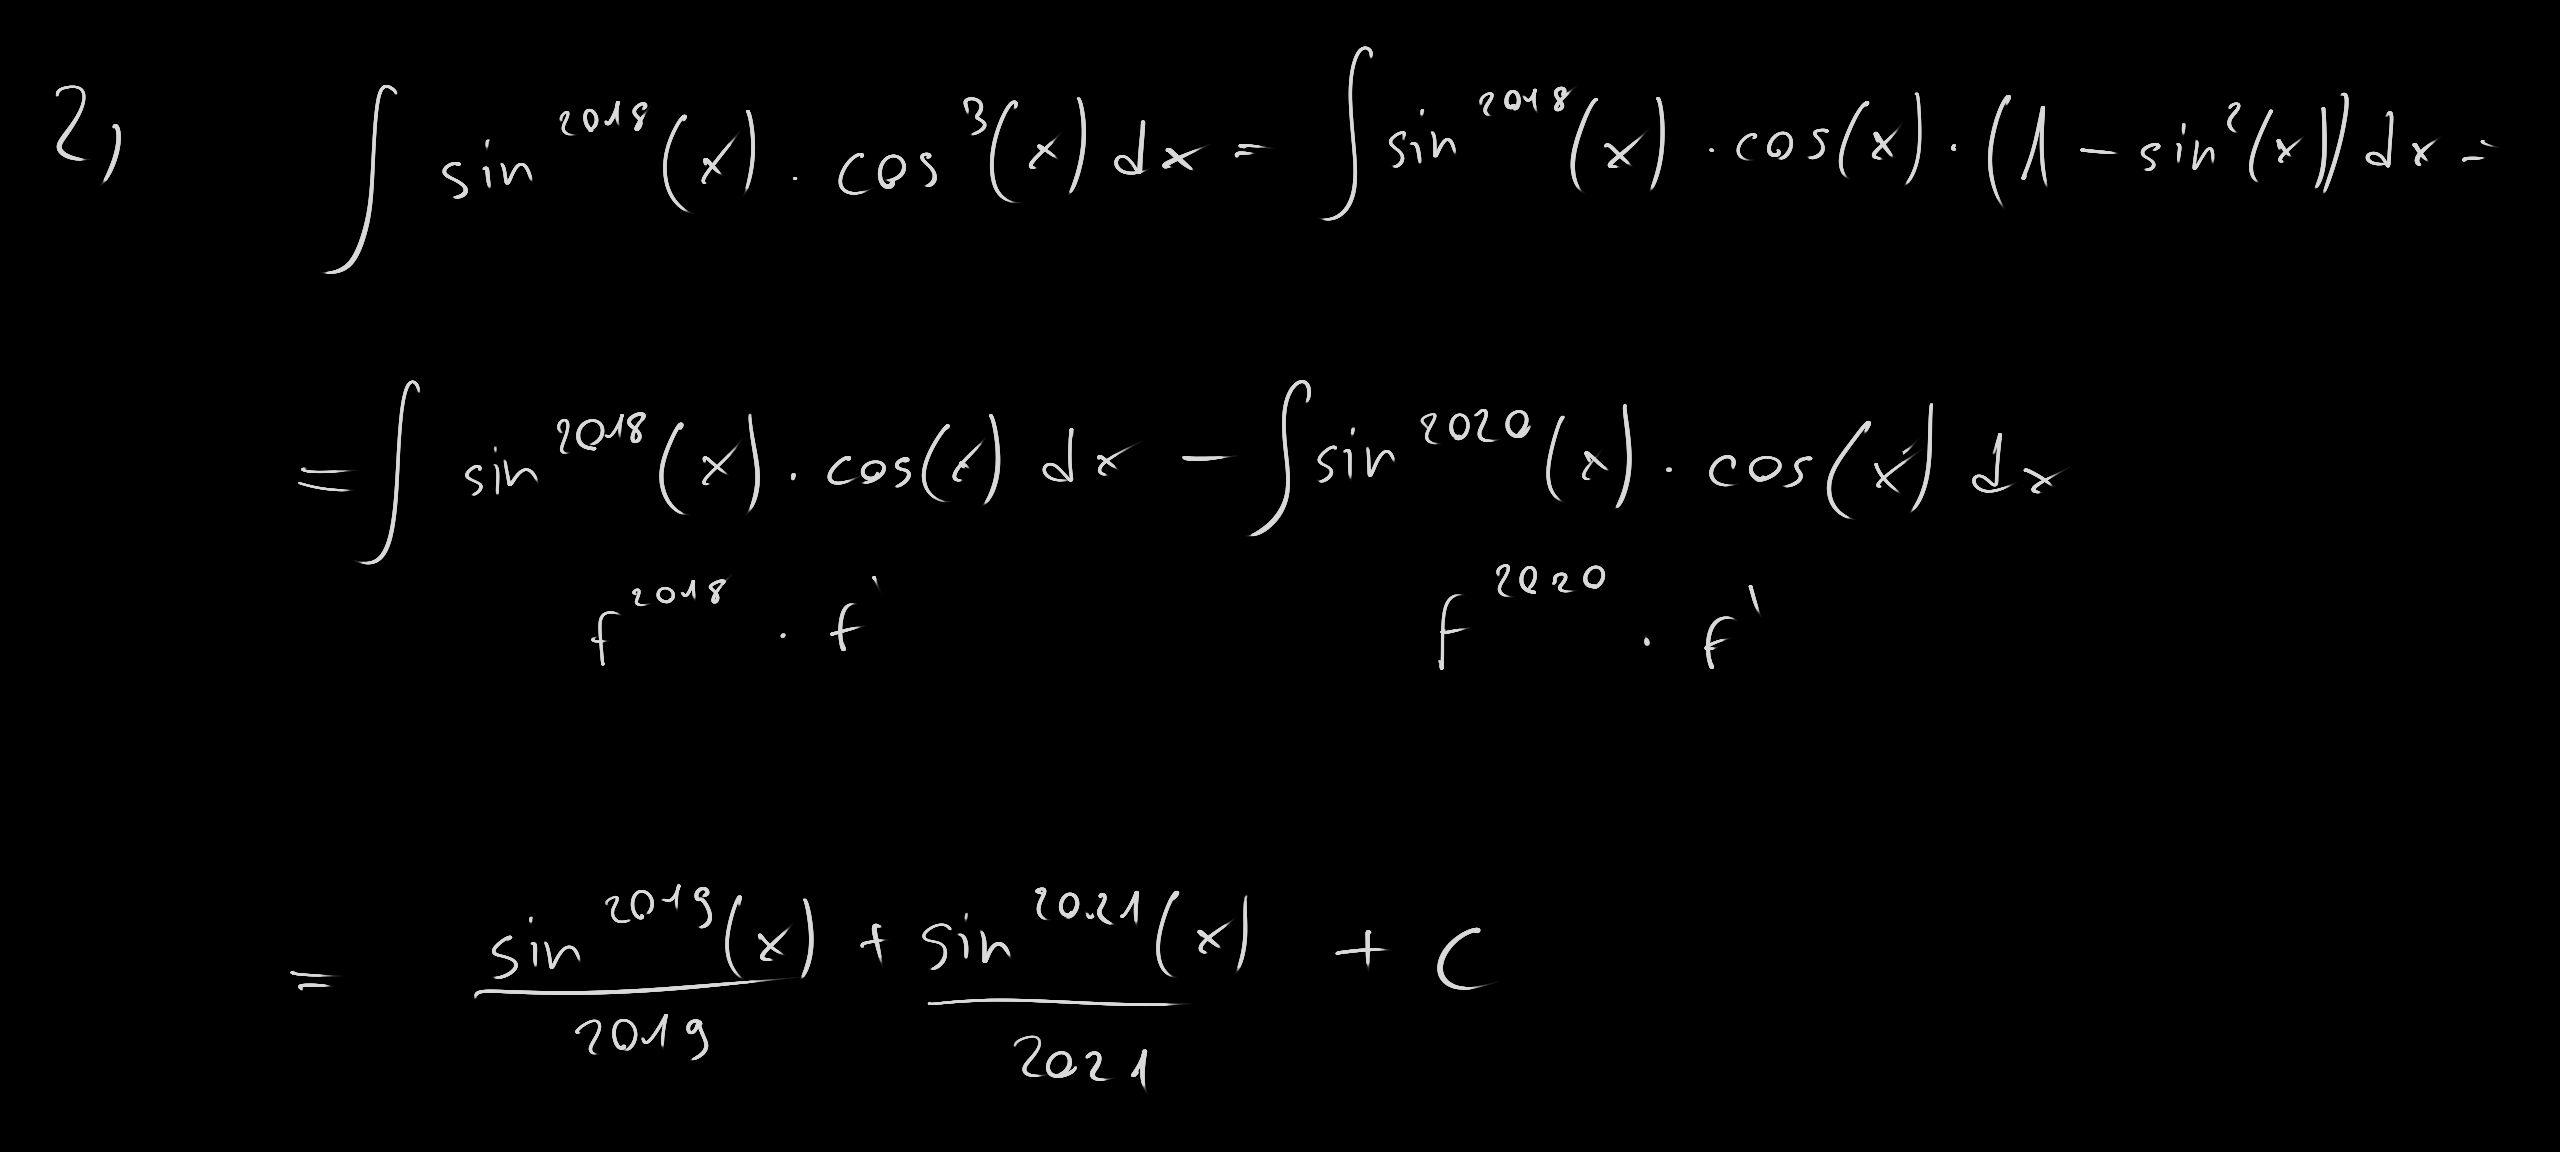 2, ∫ sin^2018(x) · cos^3(x) dx = ∫ sin^2018(x) · cos(x) · (1 − sin^2(x)) dx =
= ∫ sin^2018(x) · cos(x) dx − ∫ sin^2020(x) · cos(x) dx
f^2018 · f' f^2020 · f'
= sin^2019(x)/2019 + sin^2021(x)/2021 + C